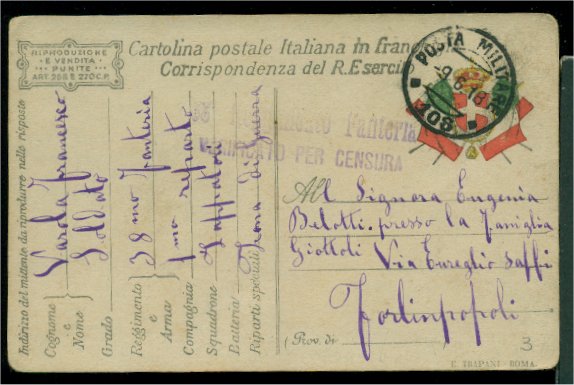 RIPRODUZIONE
E VENDITA
PUNITE
ART. 268 E 270 C.P.
Cartolina postale Italiana in franc
Corrispondenza del R. Eserci
POSTA MILITARE
18
38° Fanteria
VERIFICATO PER CENSURA
Indirizzo del mittente da riprodurre nelle risposte
Cognome e Nome Varola Francesco
Grado Soldato
Reggimento e Arma 38 mo Fanteria
Compagnia 1mo reparto
Squadrone Zappatori
Batteria
Riparti speciali Zona di Guerra
All Signora Eugenia
Belotti presso la Famiglia
Giottoli Via Eureglio Saffi
Forlinpopoli
(Prov. di
3
E. TRAPANI - ROMA.